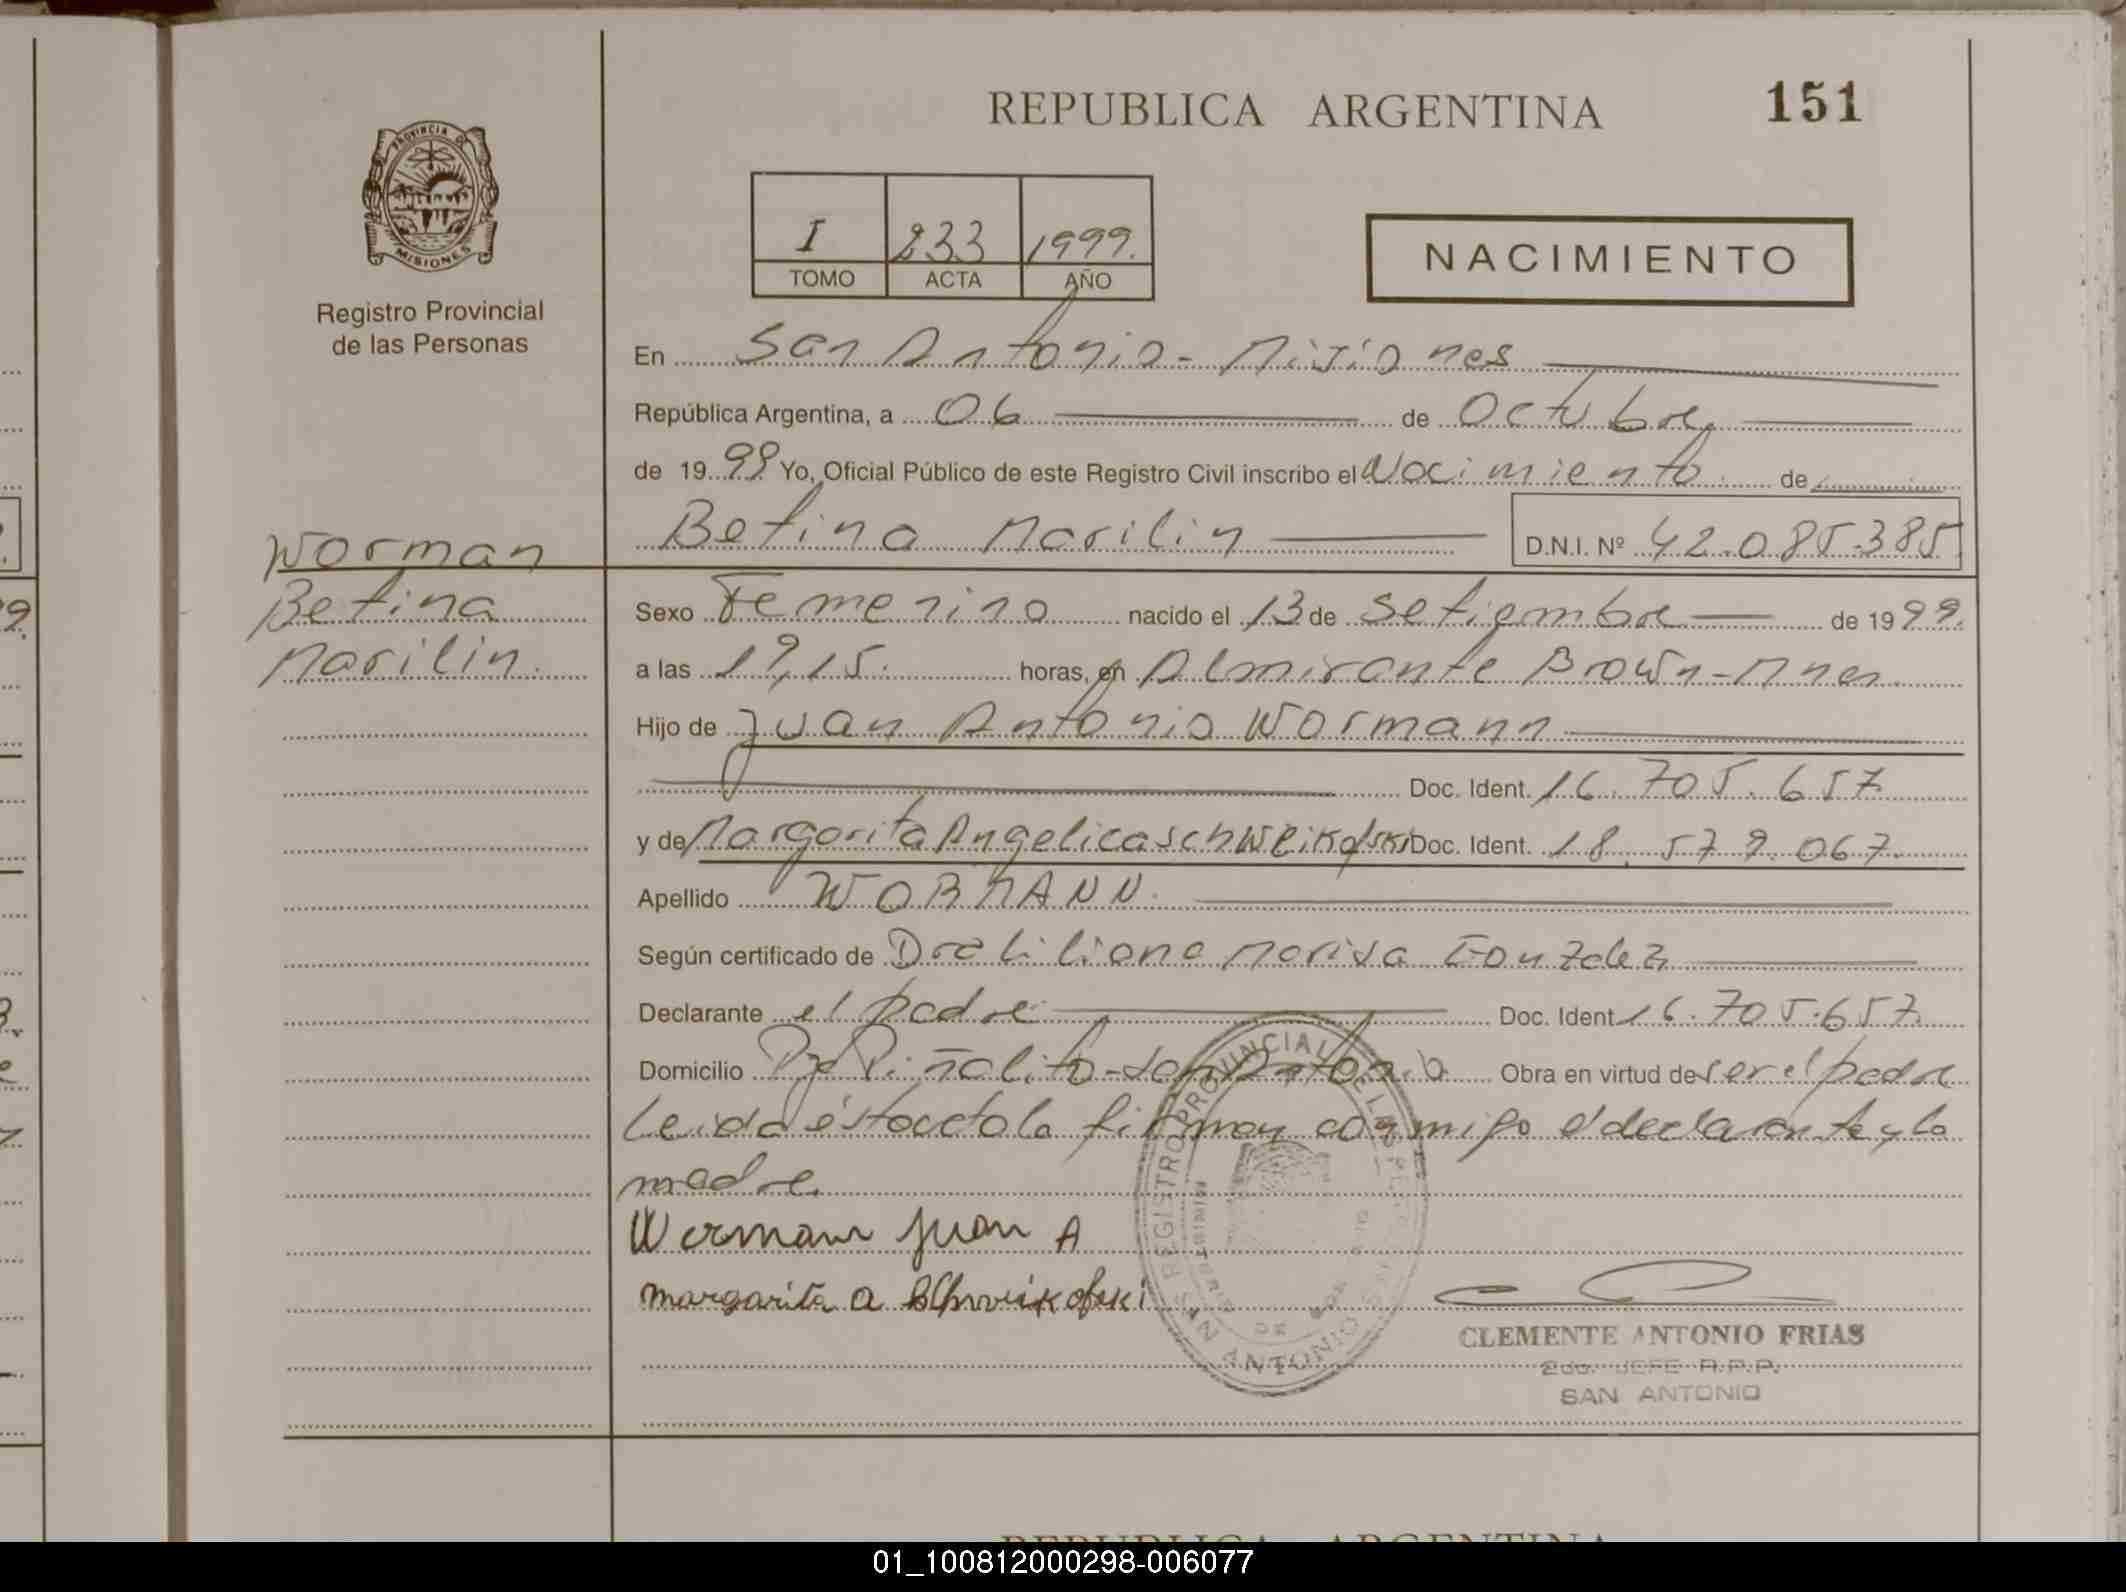 REPUBLICA ARGENTINA
151
PROVINCIA DE
MISIONES
Registro Provincial
de las Personas
I 233 1999.
TOMO ACTA AÑO
NACIMIENTO
En San Antonio - Misiones
República Argentina, a 06 de Octubre
de 1999 Yo, Oficial Público de este Registro Civil inscribo el Nacimiento de
Betina Marilin D.N.I. Nº 42.085.385
Worman
Betina
Marilin.
Sexo Femenino nacido el 13 de Setiembre de 1999.
a las 19,15. horas, en Almirante Brown - Mnes.
Hijo de Juan Antonio Wormann
Doc. Ident. 16.705.657
y de Margarita Angelica Schweikofski Doc. Ident. 18.579.067.
Apellido WORMANN.
Según certificado de Dra Liliana Marisa Gonzalez
Declarante el padre Doc. Ident 16.705.657.
Domicilio Pje Piñalito - San Antonio Obra en virtud de ser el padre
Leida ésta acta la firman conmigo el declarante y la
madre.
Wormann Juan A
margarita a Schweikofski
REGISTRO PROVINCIAL DE LAS
SAN ANTONIO
CLEMENTE ANTONIO FRIAS
2do. JEFE R.P.P.
SAN ANTONIO
REPUBLICA ARGENTINA
01_100812000298-006077